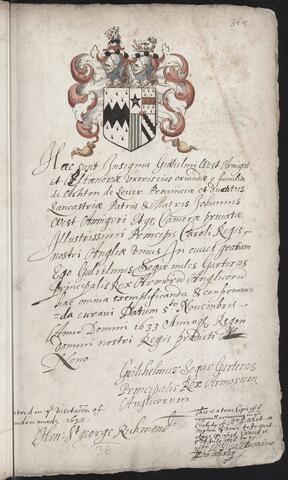 365
Haec sunt Insignia Gulielmi West Armigeri
et Uxoris eius oriundae e familia
de Ashton de Lever Provinciae et ducatus
Lancastriae Patris & Matris Johannis
West Armigeri Camerae privatae
Illustrissimi Principis Caroli Regis
nostri Angliae Unius In cuius gratiam
Ego Gulielmus Segar miles Garterus
Principalis Rex Armorum Anglicorum
has omnia exemplificanda & confirman
da curavi Datum 5to Novembris
Anno Domini 1633 Annoque Regni
domini nostri Regis praedicti
Nono
Guilhelmus Segar Garterus
Principalis Rex Armorum
Anglicorum
in ye Visitacon of
London made 1634
Hen: St George Richmond
This is a true Copy of ye
38